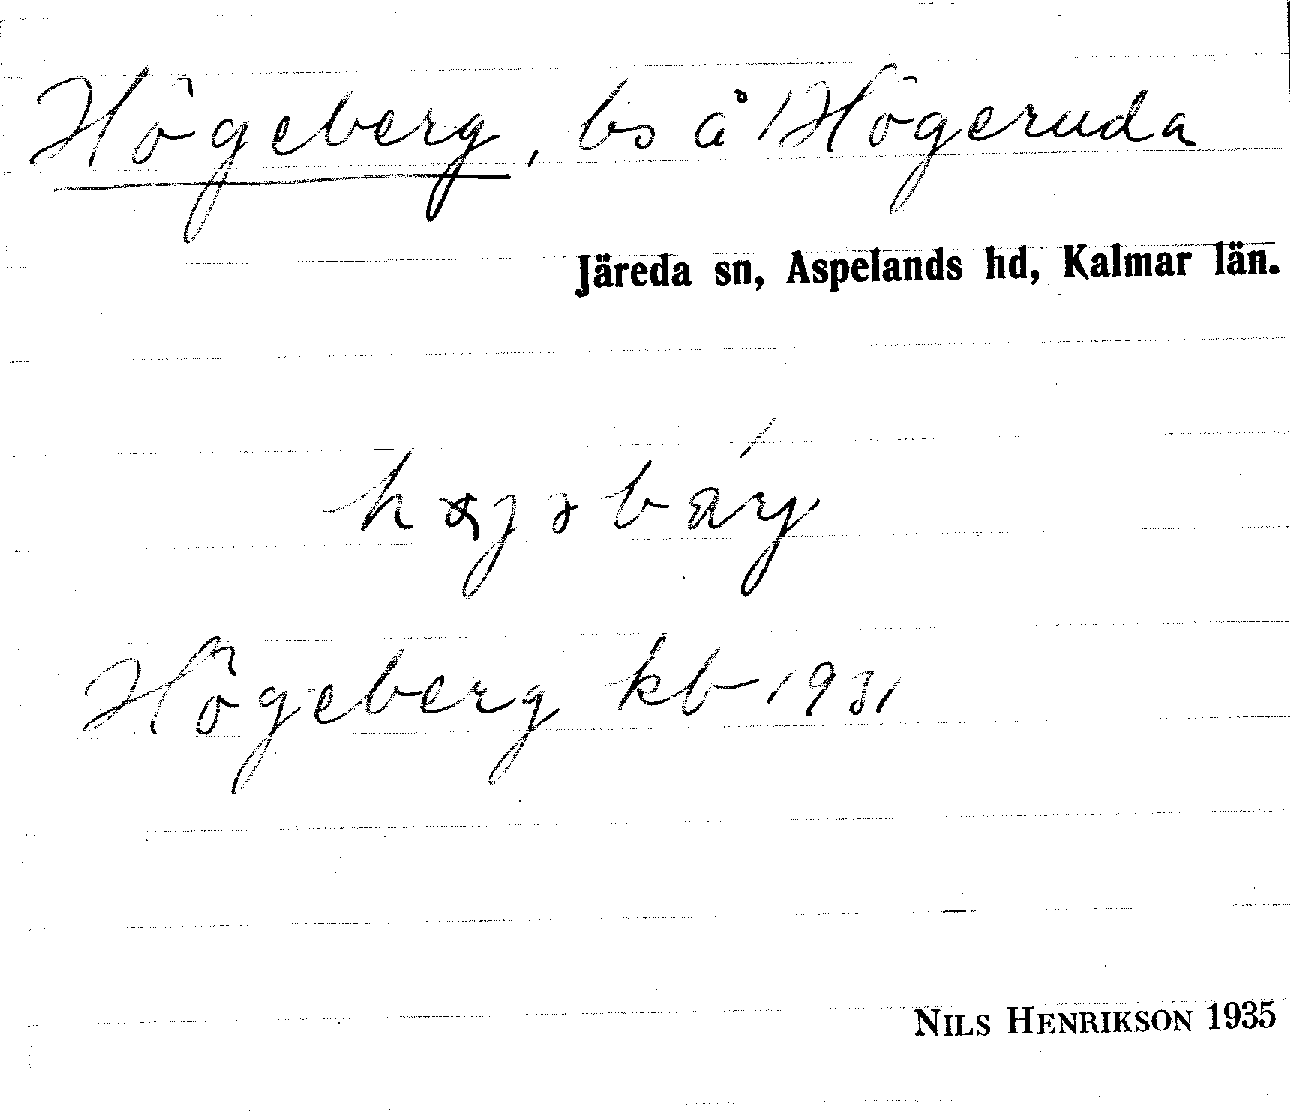 Högeberg, bs å Högeruda
Järeda sn, Aspelands hd, Kalmar län.
Högeberg kb 1931
NILS HENRIKSON 1935